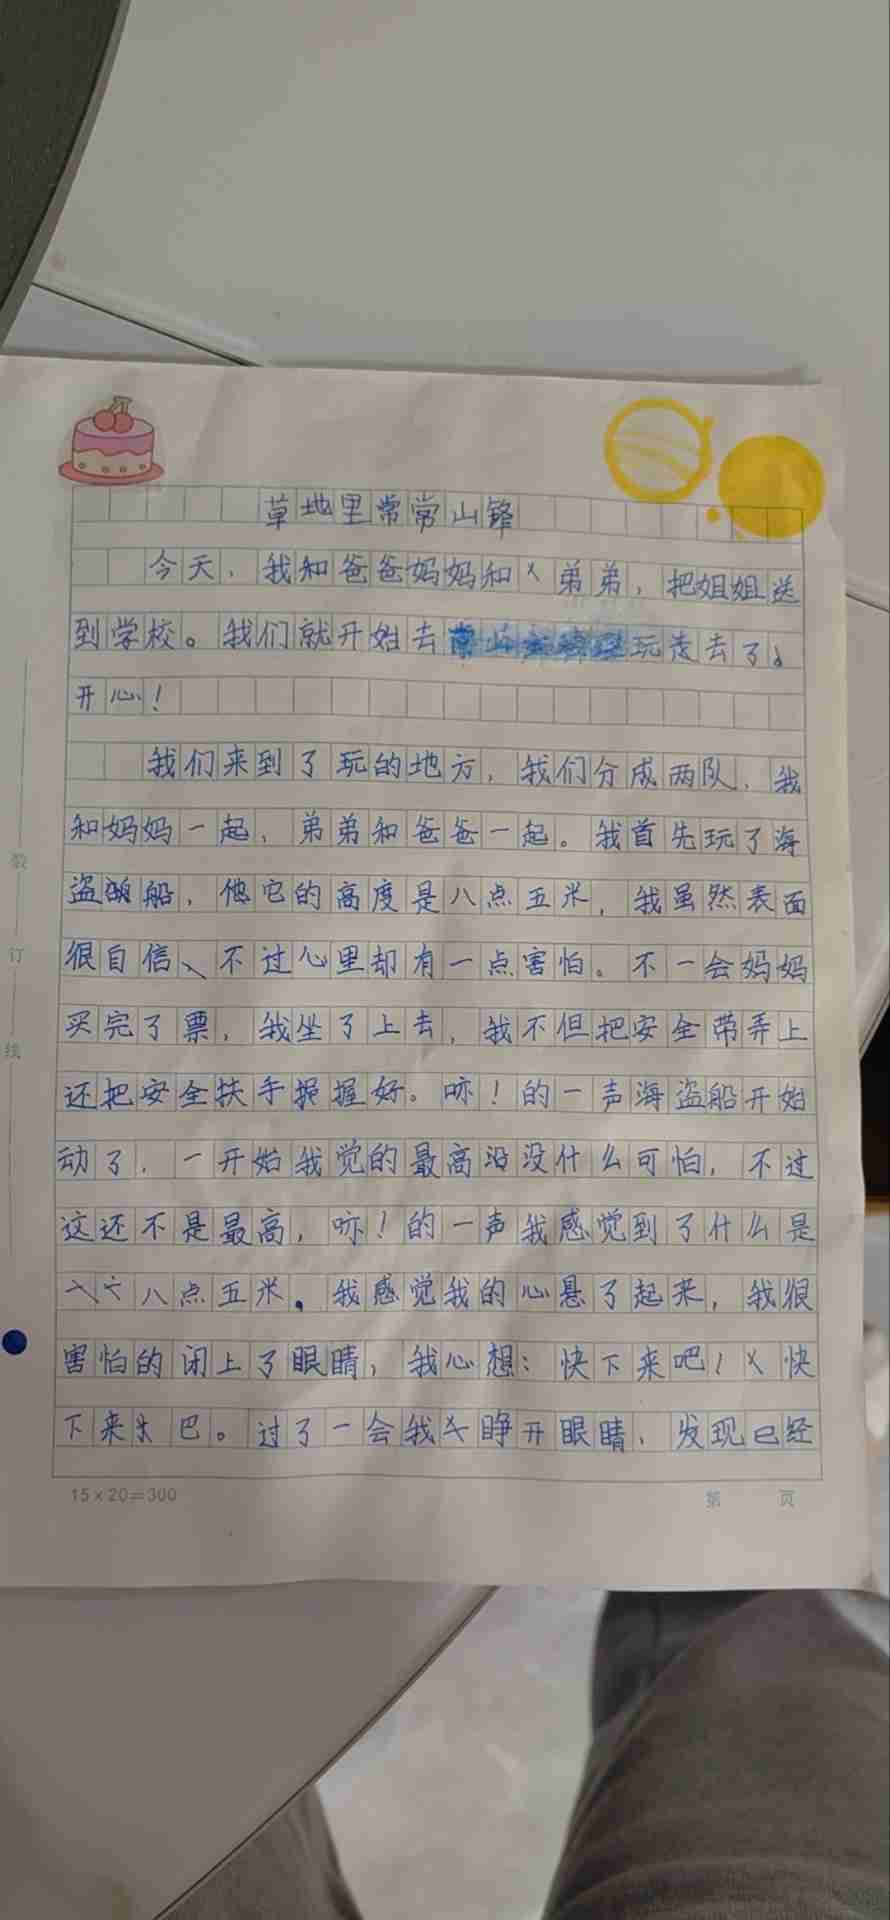 草地里常常山锋
今天，我和爸爸妈妈和弟弟，把姐姐送
到学校。我们就开始去玩走去了
开心！
我们来到了玩的地方，我们分成两队，我
和妈妈一起，弟弟和爸爸一起。我首先玩了海
盗船，他它的高度是八点五米，我虽然表面
很自信、不过心里却有一点害怕。不一会妈妈
买完了票，我坐了上去，我不但把安全带弄上
还把安全扶手握好。哧！的一声海盗船开始
动了，一开始我觉的最高没没什么可怕，不过
这还不是最高，哧！的一声我感觉到了什么是
八点五米。我感觉我的心悬了起来，我很
害怕的闭上了眼睛，我心想：快下来吧！快
下来巴。过了一会我睁开眼睛，发现已经
15×20=300
第 页
装
订
线